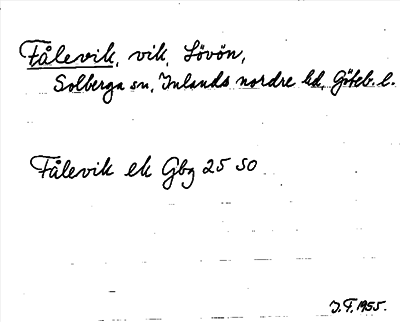 Fålevik, vik, Lövön,
Solberga sn, Inlands nordre hd, Göteb. l.
Fålevik ek Gbg 25 SO
J. F. 1955.